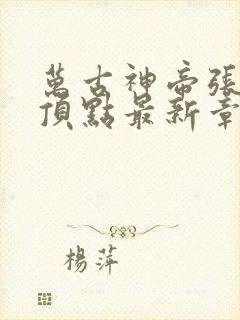 萬古神帝張
頂點最新章
楊萍